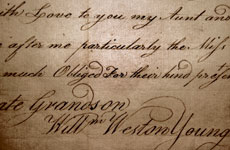 ith Love to you my Aunt and
after me particularly the Miss
much Obliged For their kind
ate Grandson
Willm Weston Young